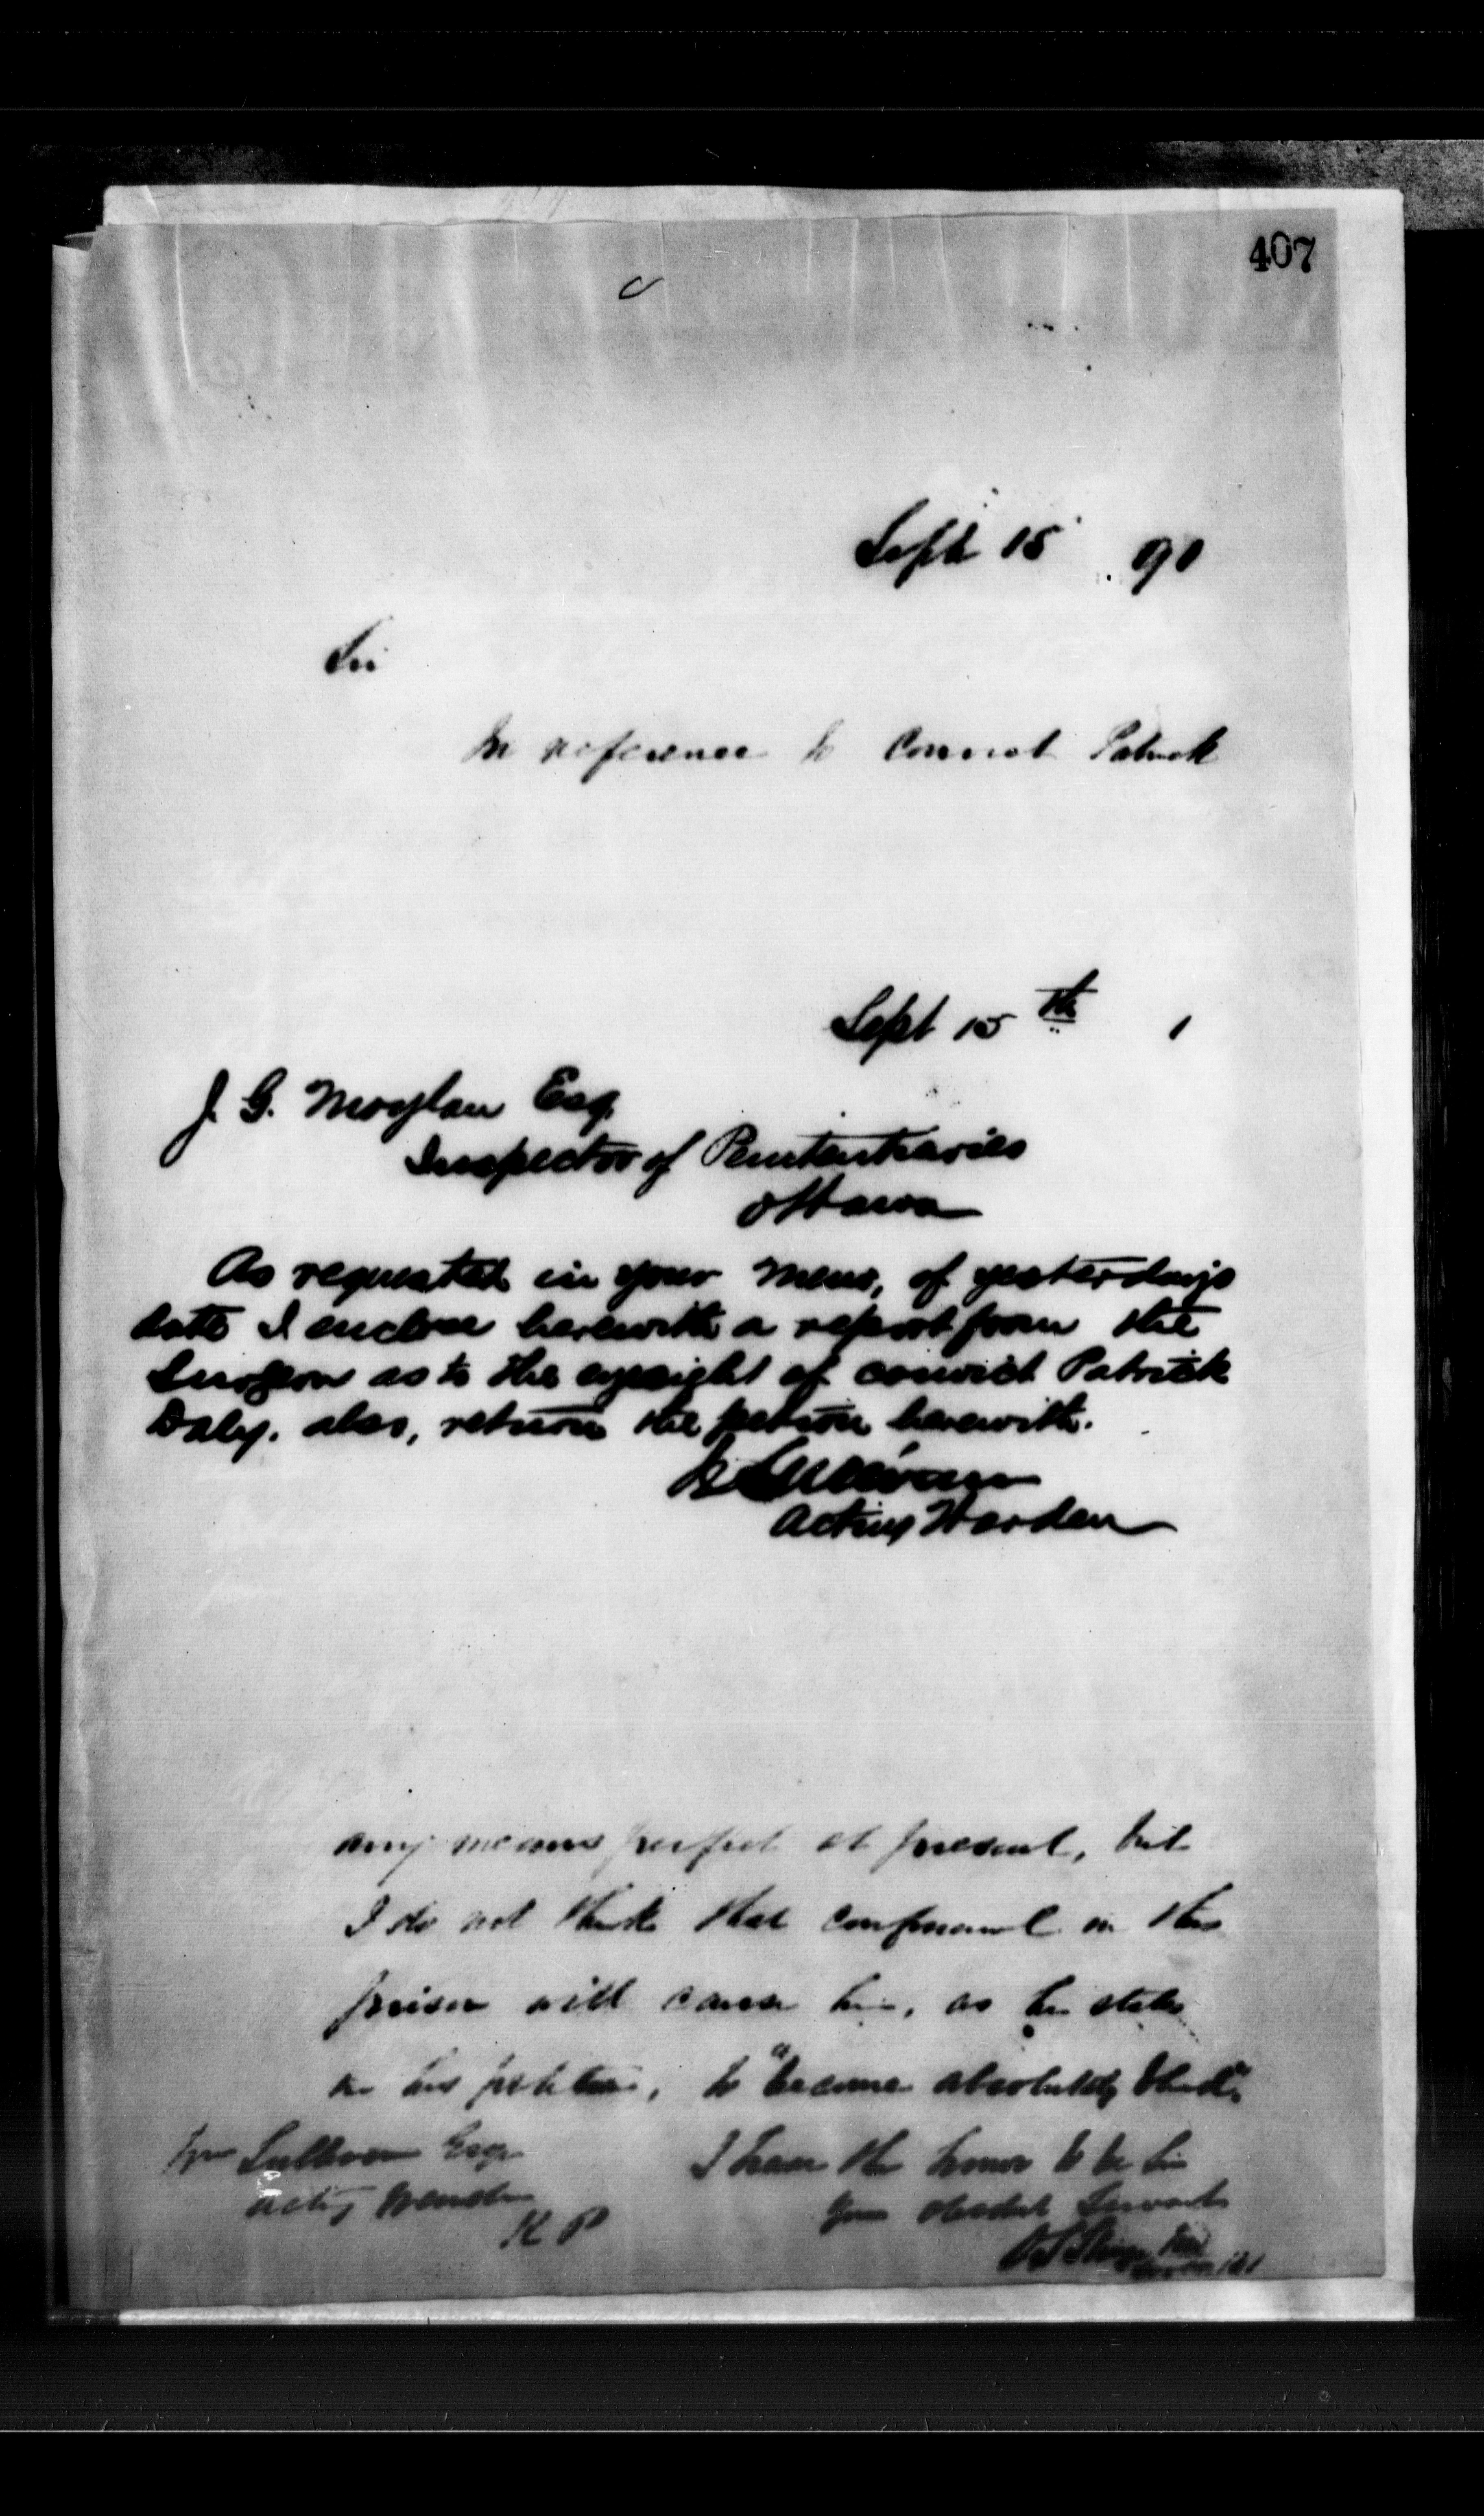 407
Sept 15 91
Sir
In reference to Convict Patrick
Sept 15th 1
J. G. Moylan Esq.
Inspector of Penitentiaries
Ottawa
As requested in your memo, of yesterdays
date I enclose herewith a report from the
Surgeon as to the eyesight of convict Patrick
Daly. also, return the petition herewith.
Sullivan
Acting Warden
any means perfect at present, but
I do not think that confinement in this
prison will cause him, as he states
in his petition, to "become absolutely blind".
Wm Sullivan Esqr
Acting Warden
K P
I have the honor to be Sir
Your obedient Servant